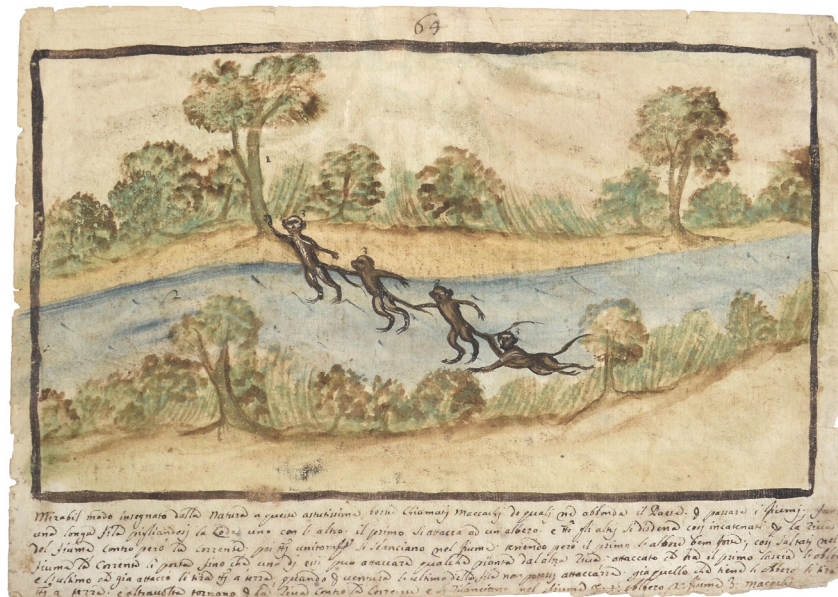 64
1
2
3
Mirabil modo insegnato dalla Natura a queste astutissime bestie Chiamatj Maccachi de quali ne abbonda il Paese, di passare i fiumj;
una longa fila pigliandosi la Coda uno con li altro. il primo si attacca ad un albero e gli altrj si distendono cosi incatenati la Riva
del fiume contro però la corrente, poi si lanciano nel fiume tenendo però il primo l'albero ben forte; cosi saltatj nel
fiume la Corrente li porta sino che uno di essi può attaccare qualche pianta dal altra Riva: attaccato il primo lascia l'albero
e l'ultimo già attacco li tira a terra, quando di ventura l'ultimo della fila non potesse attaccarsi, già quello che tiene l'Albero li tira
a terra, e altra volta tornano la Riva Contro la Corrente e si lanciano nel fiume 1: albero 2: fiume 3: macachi